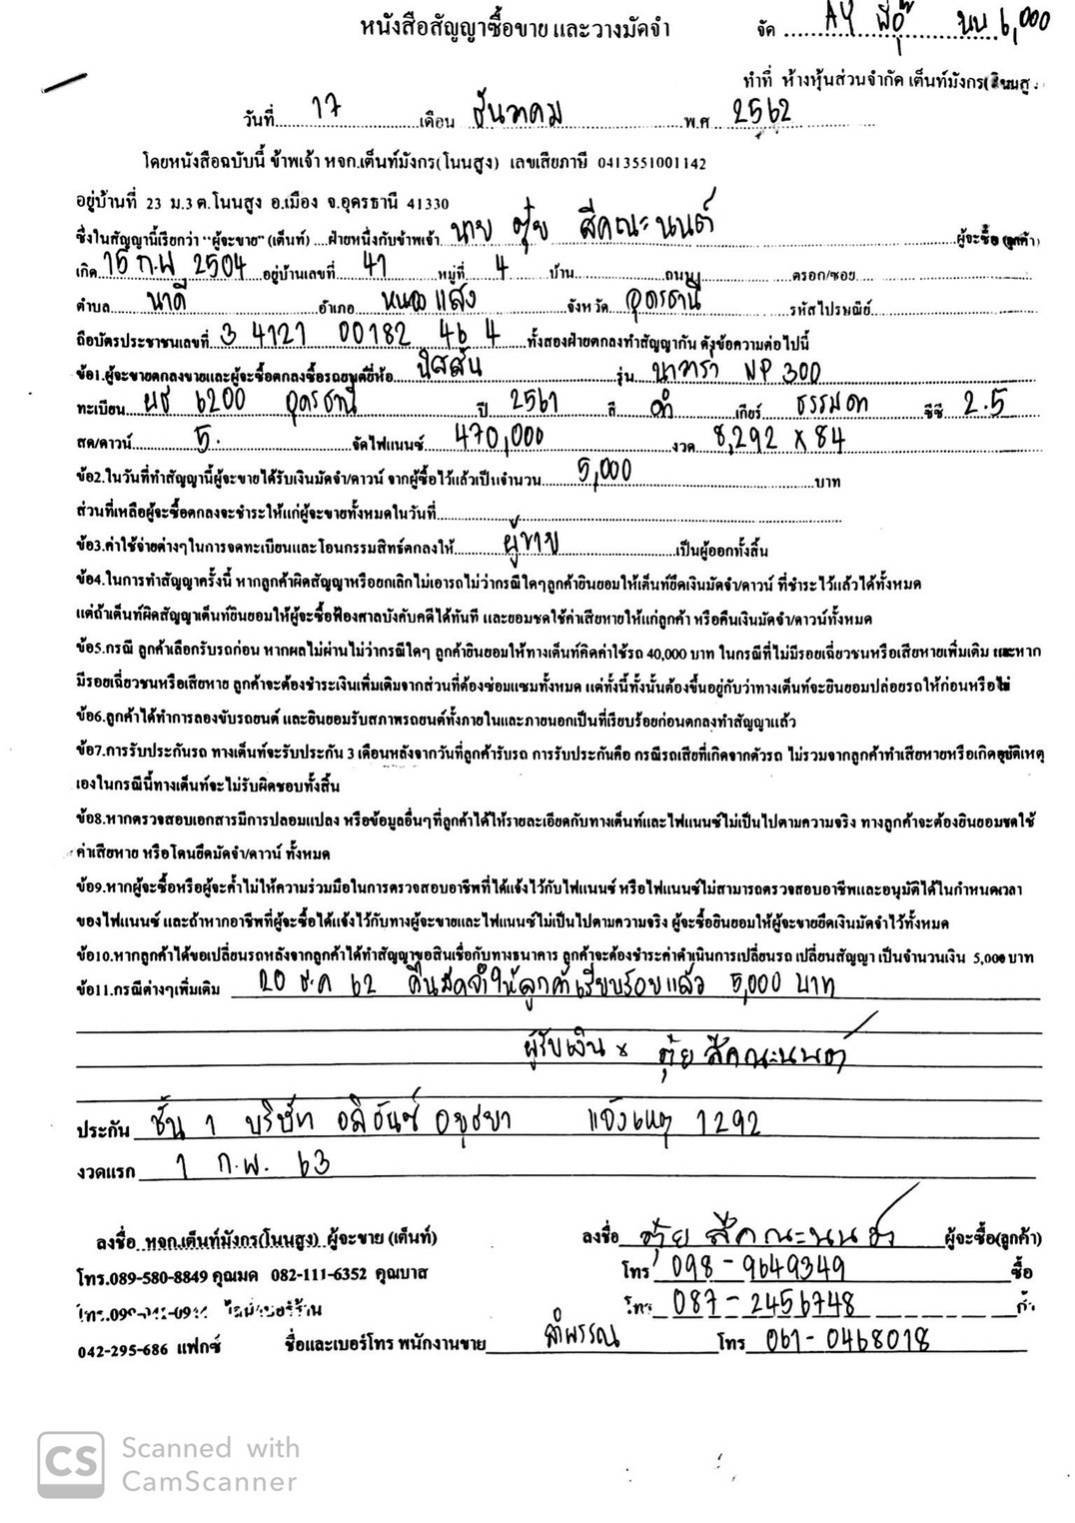 หนังสือสัญญาซื้อขาย และวางมัดจำ
จัด AY นน 6,000
ทำที่ ห้างหุ้นส่วนจำกัด เต็นท์มังกร(โนนสูง
วันที่ 17 เดือน ธันวาคม พ.ศ 2562
โดยหนังสือฉบับนี้ ข้าพเจ้า หจก.เต็นท์มังกร(โนนสูง) เลขเสียภาษี 0413551001142
อยู่บ้านที่ 23 ม.3 ต.โนนสูง อ.เมือง จ.อุดรธานี 41330
ซึ่งในสัญญานี้เรียกว่า "ผู้จะขาย" (เต็นท์) ....ฝ่ายหนึ่งกับข้าพเจ้า นาย ตุ๋ย สีคณะนนต์ ผู้จะซื้อ (ลูกค้า)
เกิด 15 ก.พ 2504 อยู่บ้านเลขที่ 41 หมู่ที่ 4 บ้าน ถนน ตรอก/ซอย
ตำบล นาดี อำเภอ หนองแสง จังหวัด อุดรธานี รหัสไปรษณีย์
ถือบัตรประชาชนเลขที่ 3 4121 00182 46 4 ทั้งสองฝ่ายตกลงทำสัญญากัน ดังข้อความต่อไปนี้
ข้อ1.ผู้จะขายตกลงขายและผู้จะซื้อตกลงซื้อรถยนต์ยี่ห้อ นิสสัน รุ่น นาวาร่า NP 300
ทะเบียน ผธ 6200 อุดรธานี ปี 2561 สี ดำ เกียร์ ธรรมดา ซีซี 2.5
สด/ดาวน์ 5. จัดไฟแนนซ์ 470,000 งวด 8,292 x 84
ข้อ2.ในวันที่ทำสัญญานี้ผู้จะขายได้รับเงินมัดจำ/ดาวน์ จากผู้ซื้อไว้แล้วเป็นจำนวน 5,000 บาท
ส่วนที่เหลือผู้จะซื้อตกลงจะชำระให้แก่ผู้จะขายทั้งหมดในวันที่
ข้อ3.ค่าใช้จ่ายต่างๆในการจดทะเบียนและโอนกรรมสิทธ์ตกลงให้ ผู้ขาย เป็นผู้ออกทั้งสิ้น
ข้อ4.ในการทำสัญญาครั้งนี้ หากลูกค้าผิดสัญญาหรือยกเลิกไม่เอารถไม่ว่ากรณีใดๆลูกค้ายินยอมให้เต็นท์ยึดเงินมัดจำ/ดาวน์ ที่ชำระไว้แล้วได้ทั้งหมด
แต่ถ้าเต็นท์ผิดสัญญาเต็นท์ยินยอมให้ผู้จะซื้อฟ้องศาลบังคับคดีได้ทันที และยอมชดใช้ค่าเสียหายให้แก่ลูกค้า หรือคืนเงินมัดจำ/ดาวน์ทั้งหมด
ข้อ5.กรณี ลูกค้าเลือกรับรถก่อน หากผลไม่ผ่านไม่ว่ากรณีใดๆ ลูกค้ายินยอมให้ทางเต็นท์คิดค่าใช้รถ 40,000 บาท ในกรณีที่ไม่มีรอยเฉี่ยวชนหรือเสียหายเพิ่มเติม และหาก
มีรอยเฉี่ยวชนหรือเสียหาย ลูกค้าจะต้องชำระเงินเพิ่มเติมจากส่วนที่ต้องซ่อมแซมทั้งหมด แต่ทั้งนี้ทั้งนั้นต้องขึ้นอยู่กับว่าทางเต็นท์จะยินยอมปล่อยรถให้ก่อนหรือไม่
ข้อ6.ลูกค้าได้ทำการลองขับรถยนต์ และยินยอมรับสภาพรถยนต์ทั้งภายในและภายนอกเป็นที่เรียบร้อยก่อนตกลงทำสัญญาแล้ว
ข้อ7.การรับประกันรถ ทางเต็นท์จะรับประกัน 3 เดือนหลังจากวันที่ลูกค้ารับรถ การรับประกันคือ กรณีรถเสียที่เกิดจากตัวรถ ไม่รวมจากลูกค้าทำเสียหายหรือเกิดอุบัติเหตุ
เองในกรณีนี้ทางเต็นท์จะไม่รับผิดชอบทั้งสิ้น
ข้อ8.หากตรวจสอบเอกสารมีการปลอมแปลง หรือข้อมูลอื่นๆที่ลูกค้าได้ให้รายละเอียดกับทางเต็นท์และไฟแนนซ์ไม่เป็นไปตามความจริง ทางลูกค้าจะต้องยินยอมชดใช้
ค่าเสียหาย หรือโดนยึดมัดจำ/ดาวน์ ทั้งหมด
ข้อ9.หากผู้จะซื้อหรือผู้จะค้ำไม่ให้ความร่วมมือในการตรวจสอบอาชีพที่ได้แจ้งไว้กับไฟแนนซ์ หรือไฟแนนซ์ไม่สามารถตรวจสอบอาชีพและอนุมัติได้ในกำหนดเวลา
ของไฟแนนซ์ และถ้าหากอาชีพที่ผู้จะซื้อได้แจ้งไว้กับทางผู้จะขายและไฟแนนซ์ไม่เป็นไปตามความจริง ผู้จะซื้อยินยอมให้ผู้จะขายยึดเงินมัดจำไว้ทั้งหมด
ข้อ10.หากลูกค้าได้ขอเปลี่ยนรถหลังจากลูกค้าได้ทำสัญญาขอสินเชื่อกับทางธนาคาร ลูกค้าจะต้องชำระค่าดำเนินการเปลี่ยนรถ เปลี่ยนสัญญา เป็นจำนวนเงิน 5,000 บาท
ข้อ11.กรณีต่างๆเพิ่มเติม 20 ธ.ค 62 คืนมัดจำให้ลูกค้าเรียบร้อยแล้ว 5,000 บาท
ผู้รับเงิน x ตุ๋ย สีคณะนนต์
ประกัน ชั้น 1 บริษัท อลิอันซ์ อยุธยา แจ้งเหตุ 1292
งวดแรก 1 ก.พ. 63
ลงชื่อ หจก.เต็นท์มังกร(โนนสูง) ผู้จะขาย (เต็นท์) ลงชื่อ ตุ๋ย สีคณะนนต์ ผู้จะซื้อ(ลูกค้า)
โทร.089-580-8849 คุณมด 082-111-6352 คุณบาส โทร 098-9649349 ซื้อ
โทร. ร้าน โทร 087-2456748 ค้ำ
042-295-686 แฟกซ์ ชื่อและเบอร์โทร พนักงานขาย ลำพรรณ โทร 061-0468018
CS Scanned with
CamScanner